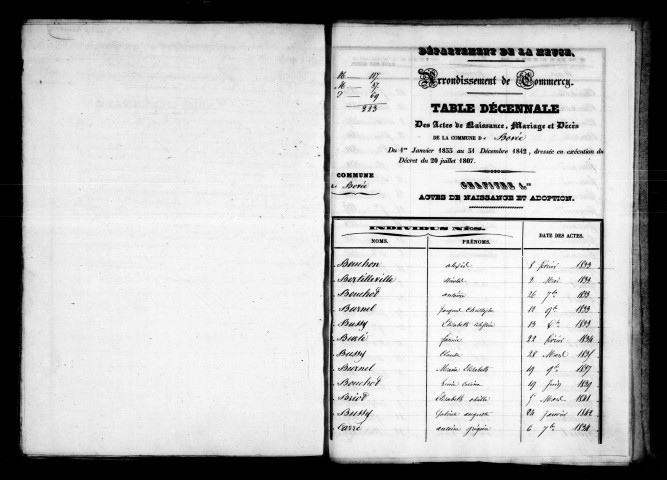 DÉPARTEMENT DE LA MEUSE.
Arrondissement de Commercy.
N. 117
M. 37
D. 59
213
TABLE DÉCENNALE
Des Actes de Naissance, Mariage et Décès
DE LA COMMUNE De Bovée
Du 1er Janvier 1833 au 31 Décembre 1842, dressée en exécution du
Décret du 20 juillet 1807.
COMMUNE
de Bovée
CHAPITRE 1er
ACTES DE NAISSANCE ET ADOPTION.
INDIVIDUS NÉS.
NOMS. PRÉNOMS. DATE DES ACTES.
Bouchon 8 février 1833
Bertilleville 9 Mai 1833
Bouchot antoine 26 7bre 1833
Burnel Joseph Christophe 12 9bre 1833
Bussy Elisabeth 13 Xbre 1833
22 février 1834
Bussy Claude 28 Mars 1835
Burnel Marie Elisabeth 19 9bre 1837
Bouchot 19 Juin 1839
Briot Elisabeth 5 Mars 1841
Bussy auguste 24 Janvier 1842
Carré antoine grégoire 6 7bre 1834